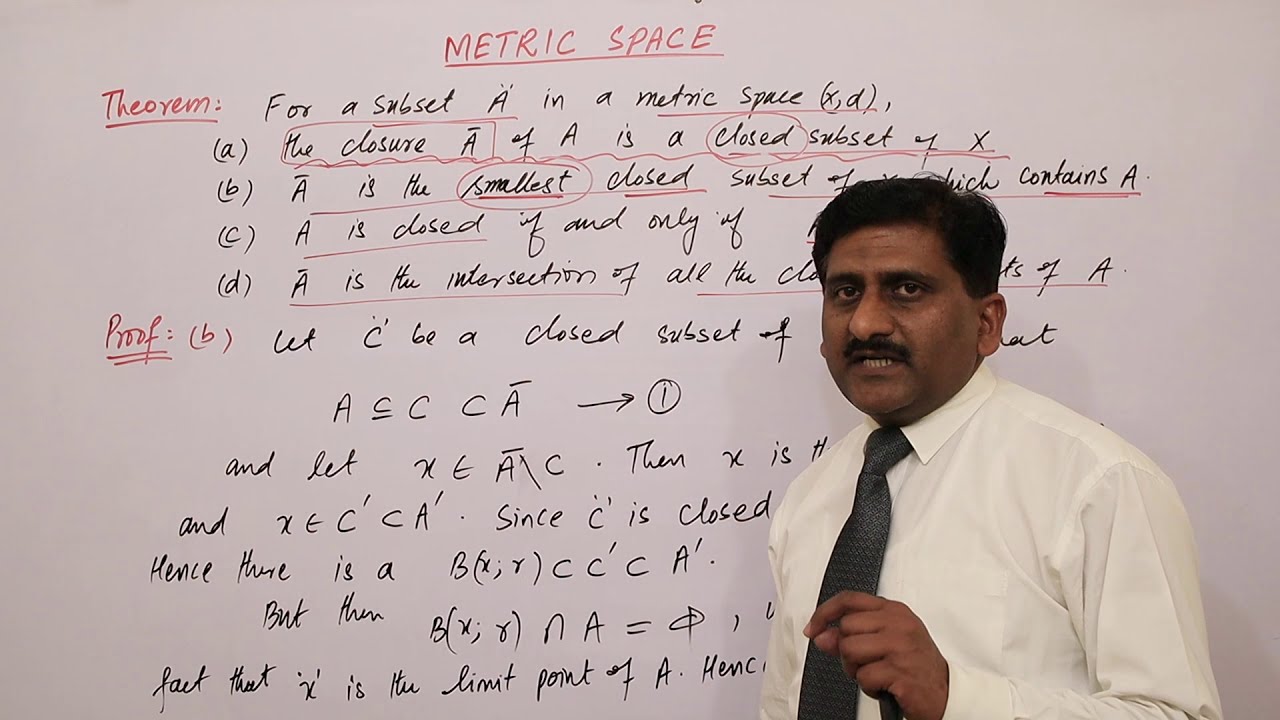 METRIC SPACE
Theorem: For a subset 'A' in a metric space (x,d),
(a) the closure Ā of A is a closed subset of X
(b) Ā is the smallest closed subset of x, which contains A.
(c) A is closed if and only if
(d) Ā is the intersection of all the of A.
Proof: (b) Let 'C' be a closed subset of
A ⊆ C ⊂ Ā → ①
and let x ∈ Ā\C. Then x is
and x ∈ C' ⊂ A'. Since 'C' is closed
Hence there is a B(x; r) ⊂ C' ⊂ A'.
But then B(x; r) ∩ A = Φ,
fact that 'x' is the limit point of A.